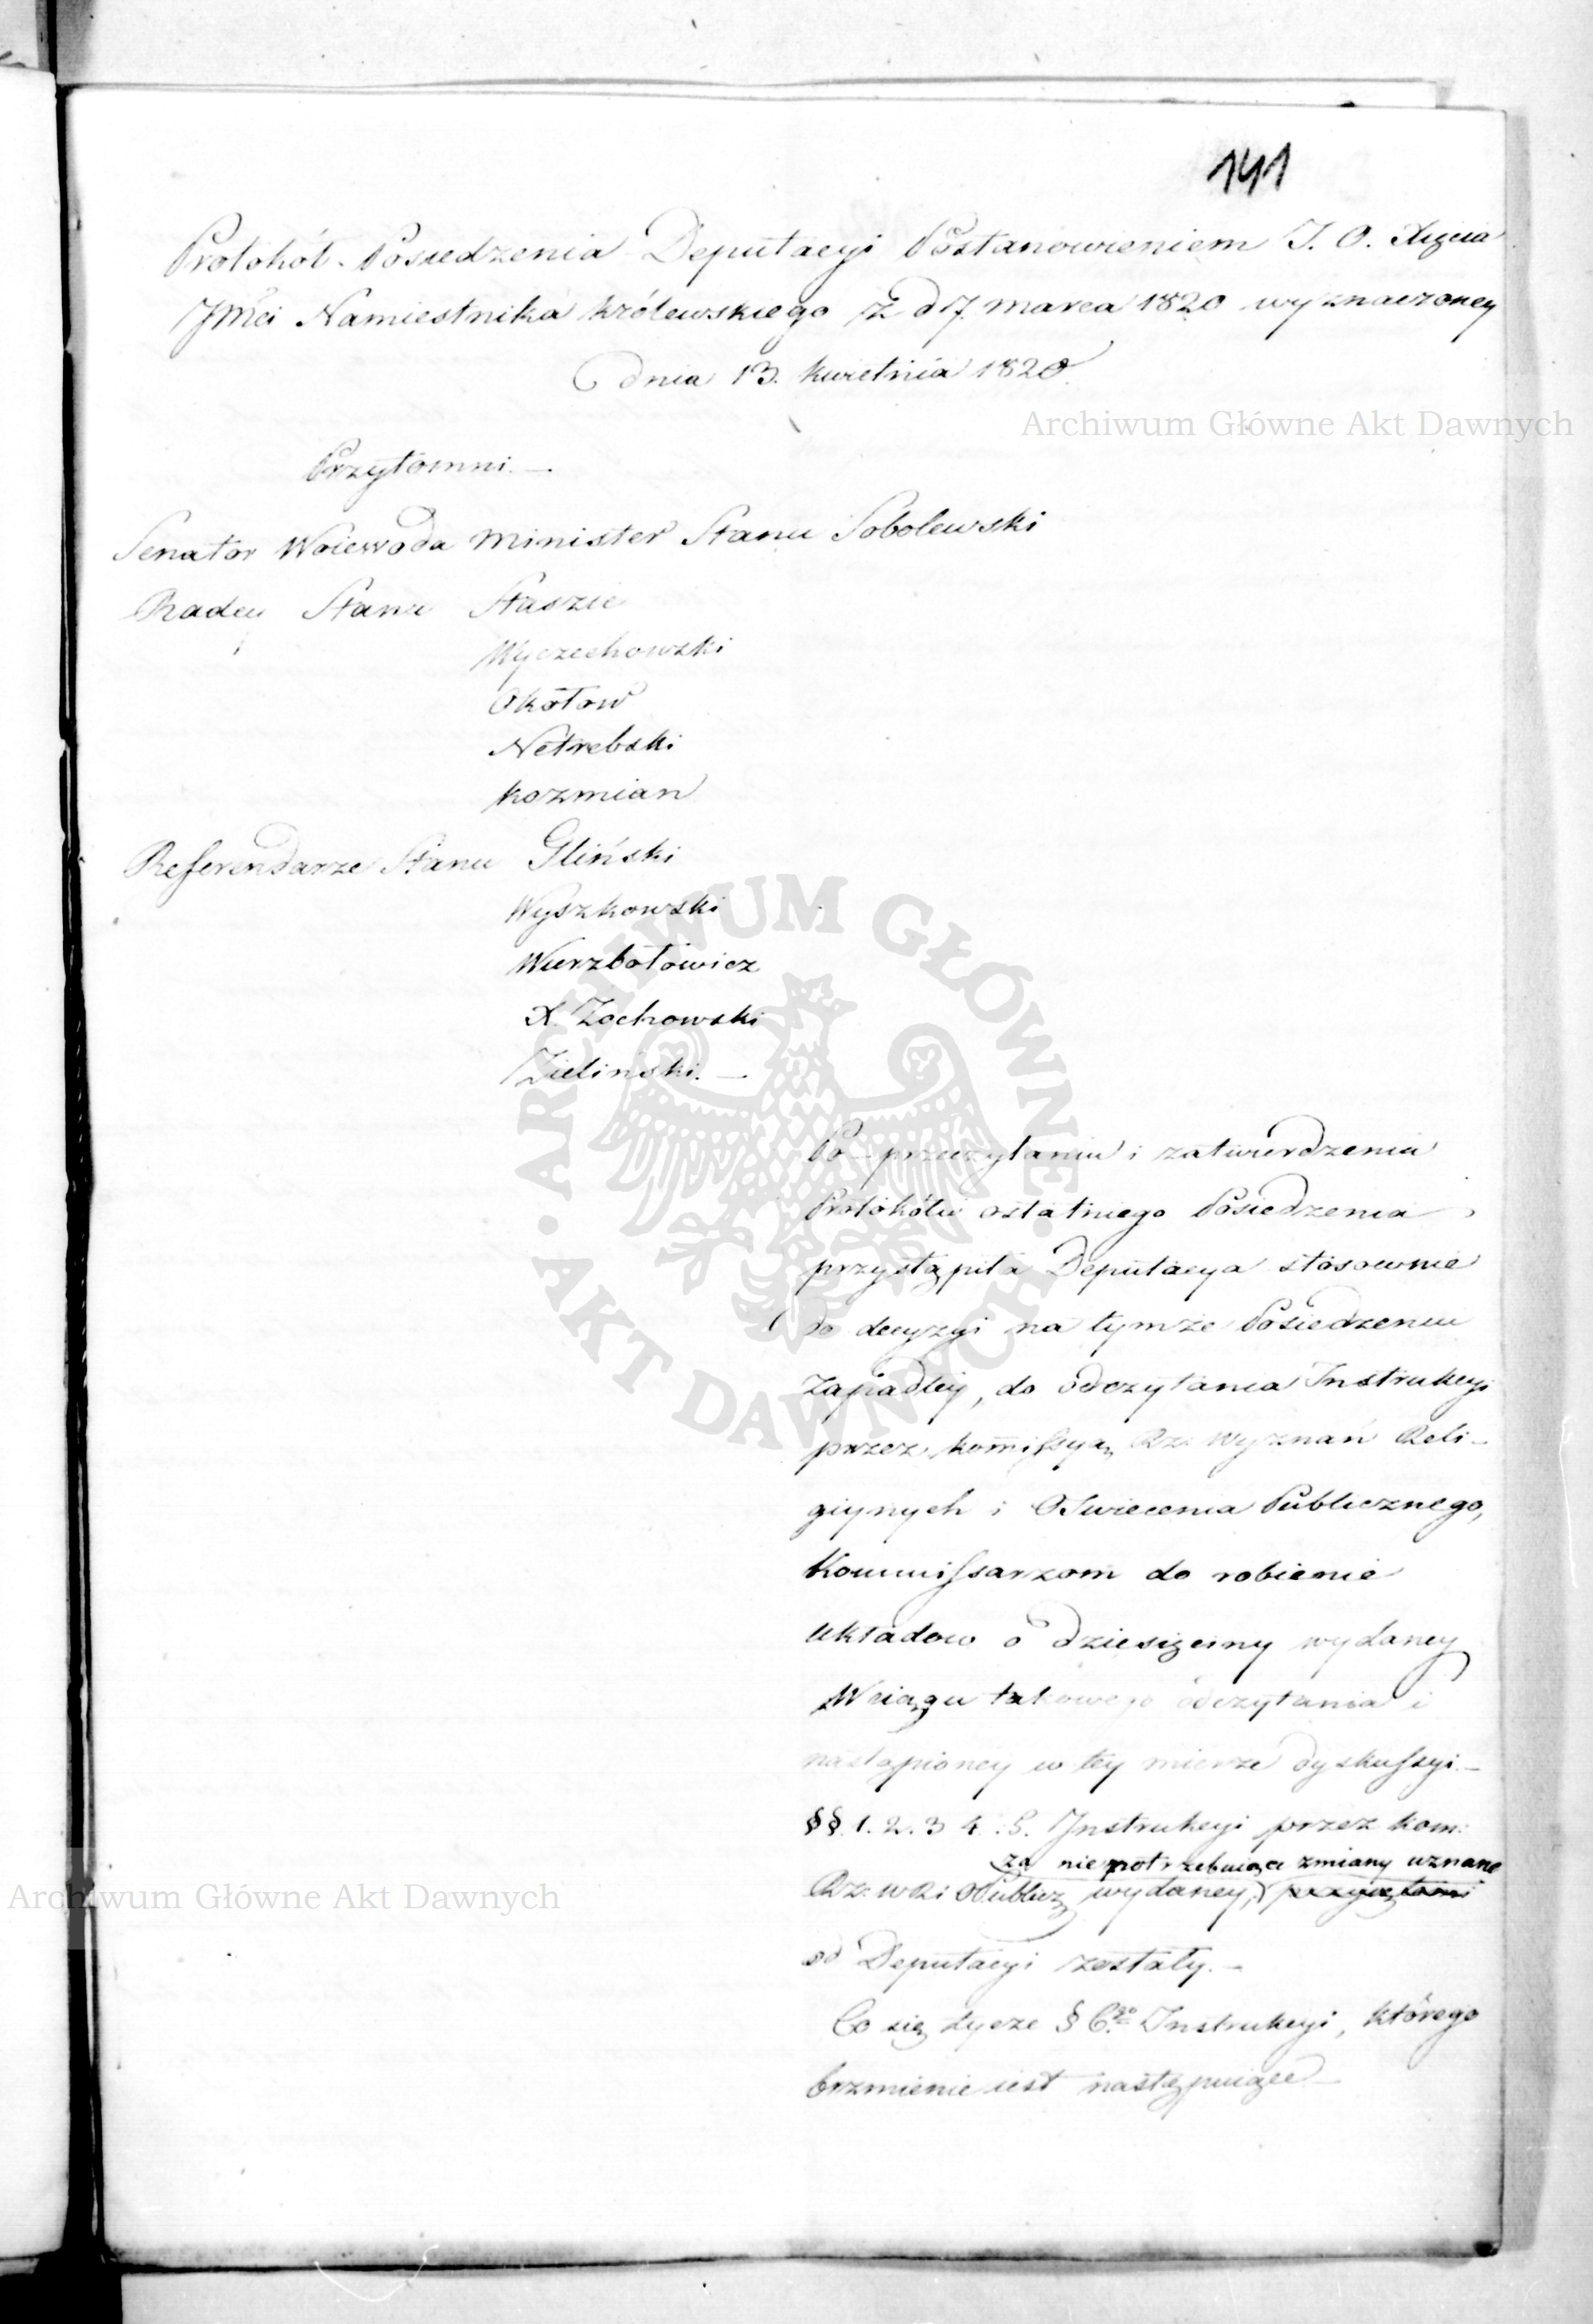 141
Protokół Posiedzenia Deputacyi Postanowieniem J. O. Xięcia
JMci Namiestnika Królewskiego z d 7. marca 1820 wyznaczoney
dnia 13. kwietnia 1820.
Archiwum Główne Akt Dawnych
Przytomni. —
Senator Woiewoda Minister Stanu Sobolewski
Radcy Stanu Staszic
Wyczechowski
Okołow
Netrebski
Kozmian
Referendarze Stanu Gliński
Wyszkowski
Wierzbołowicz
X. Zochowski
Zieliński. —
ARCHIWUM GŁÓWNE · AKT DAWNYCH ·
Po przeczytaniu i zatwierdzeniu
Protokółu ostatniego Posiedzenia,
przystąpiła Deputacya stosownie
do decyzyi na tymże Posiedzeniu
Zapadłey, do odczytania Instrukcyi
przez Kommissyą Rz: Wyznań Reli-
giynych i Oświecenia Publicznego,
Kommissarzom do robienie
układow o dziesięciny wydaney
W ciągu takowego odczytania i
nastąpioney w tey mierze dyskussyi. —
§§ 1. 2. 3 4. 5. Instrukcyi przez Kom:
za niepotrzebuiące zmiany uznane
Rz: WR i OPublicz wydaney, przyięte
od Deputacyi zostały. —
Co się tycze § 6.go Instrukcyi, którego
brzmienie iest następuiące —
Archiwum Główne Akt Dawnych